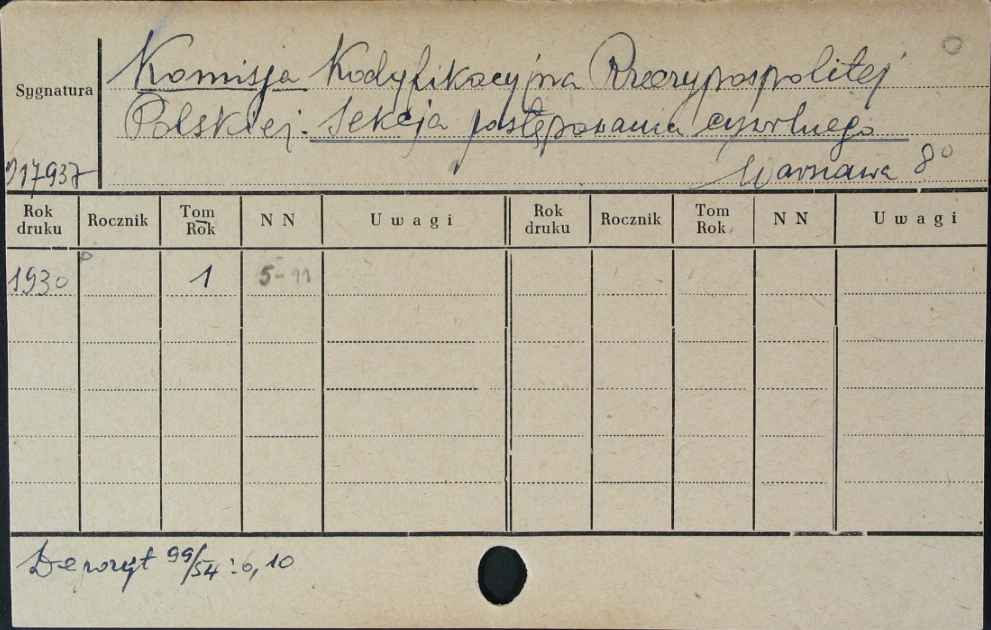 Komisja Kodyfikacyjna Rzeczypospolitej
Sygnatura
Polskiej. Sekcja postępowania cywilnego
217937
Warszawa 8°
Rok druku Rocznik Tom Rok N N Uwagi Rok druku Rocznik Tom Rok N N Uwagi
1930 1 5-11
Depozyt 99/54 : 6, 10